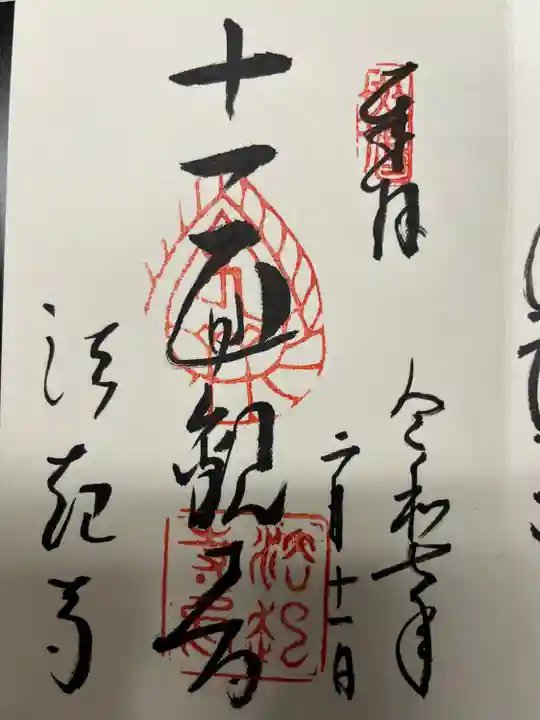 奉拝
令和七年
二月十一日
十一面観音
法起寺